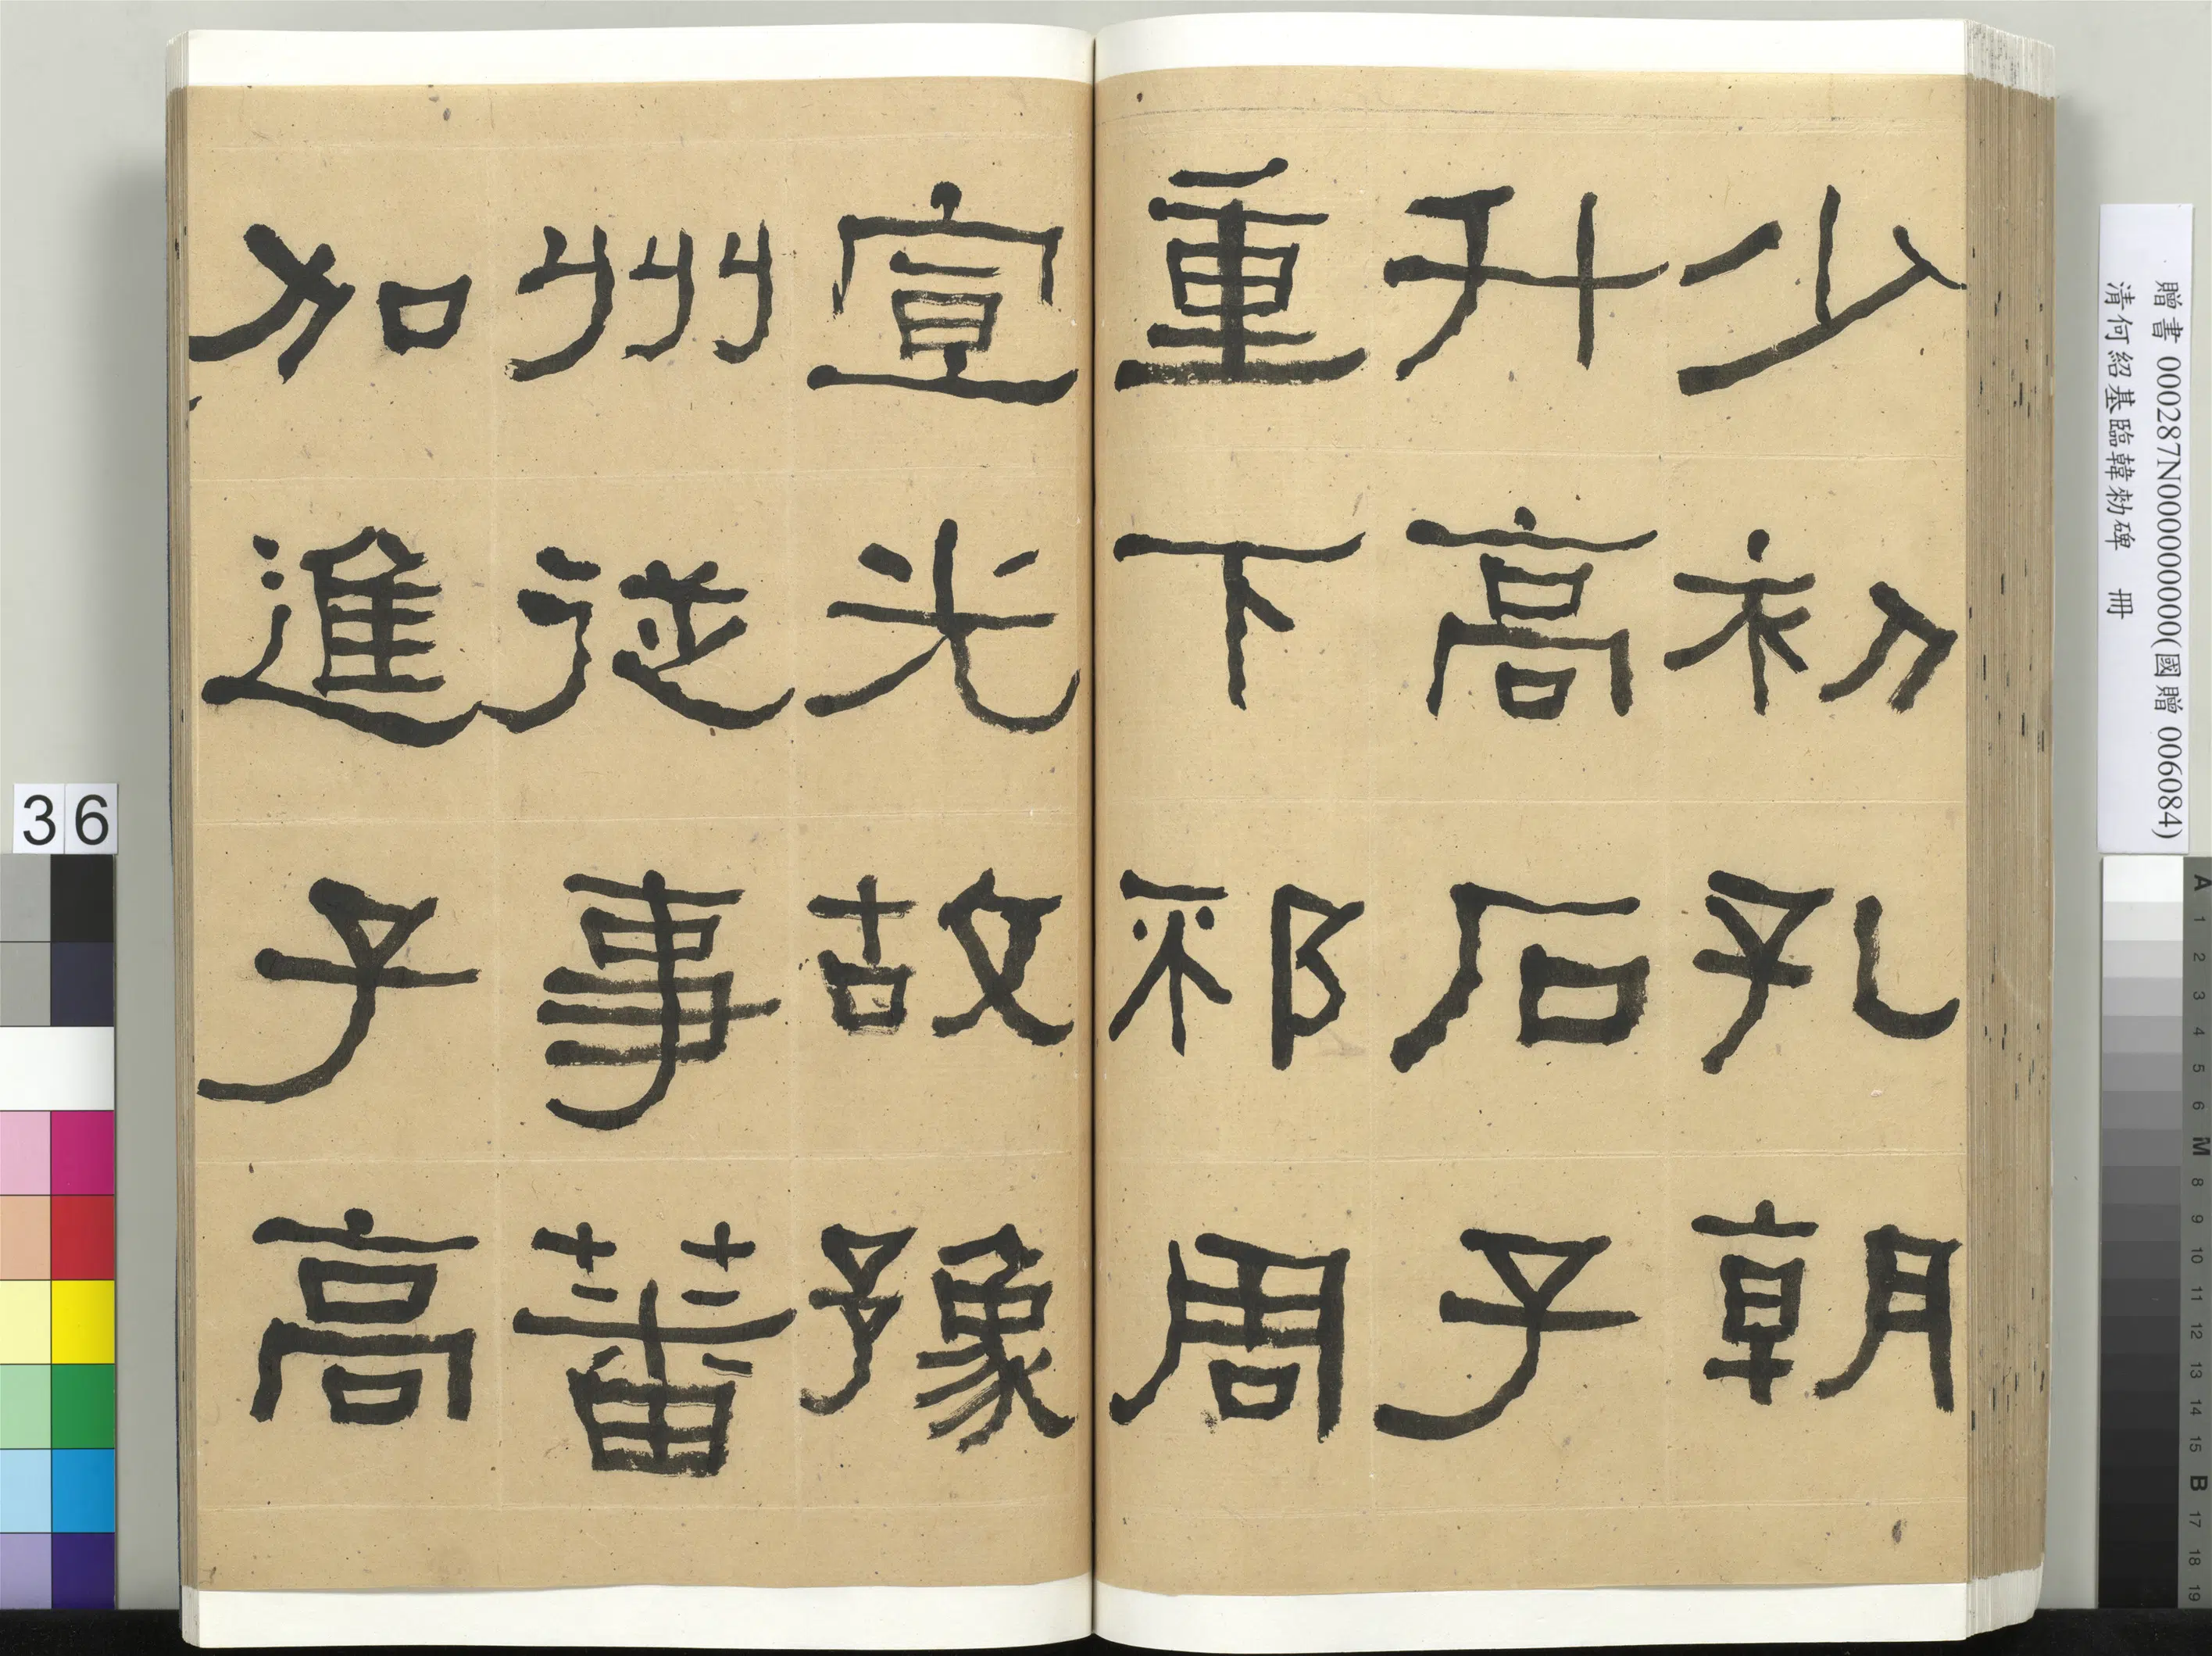 少初孔朝
升高石子
重下邳周
宣光故豫
州從事蕃
加進子高
贈書 000287N000000000(國贈 006084)
清何紹基臨韓勑碑 冊
36
A 1 2 3 4 5 6 M 8 9 10 11 12 13 14 15 B 17 18 19